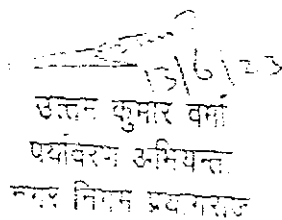 13/6/23
उत्तम कुमार वर्मा
पर्यावरण अभियन्ता
नगर निगम प्रयागराज